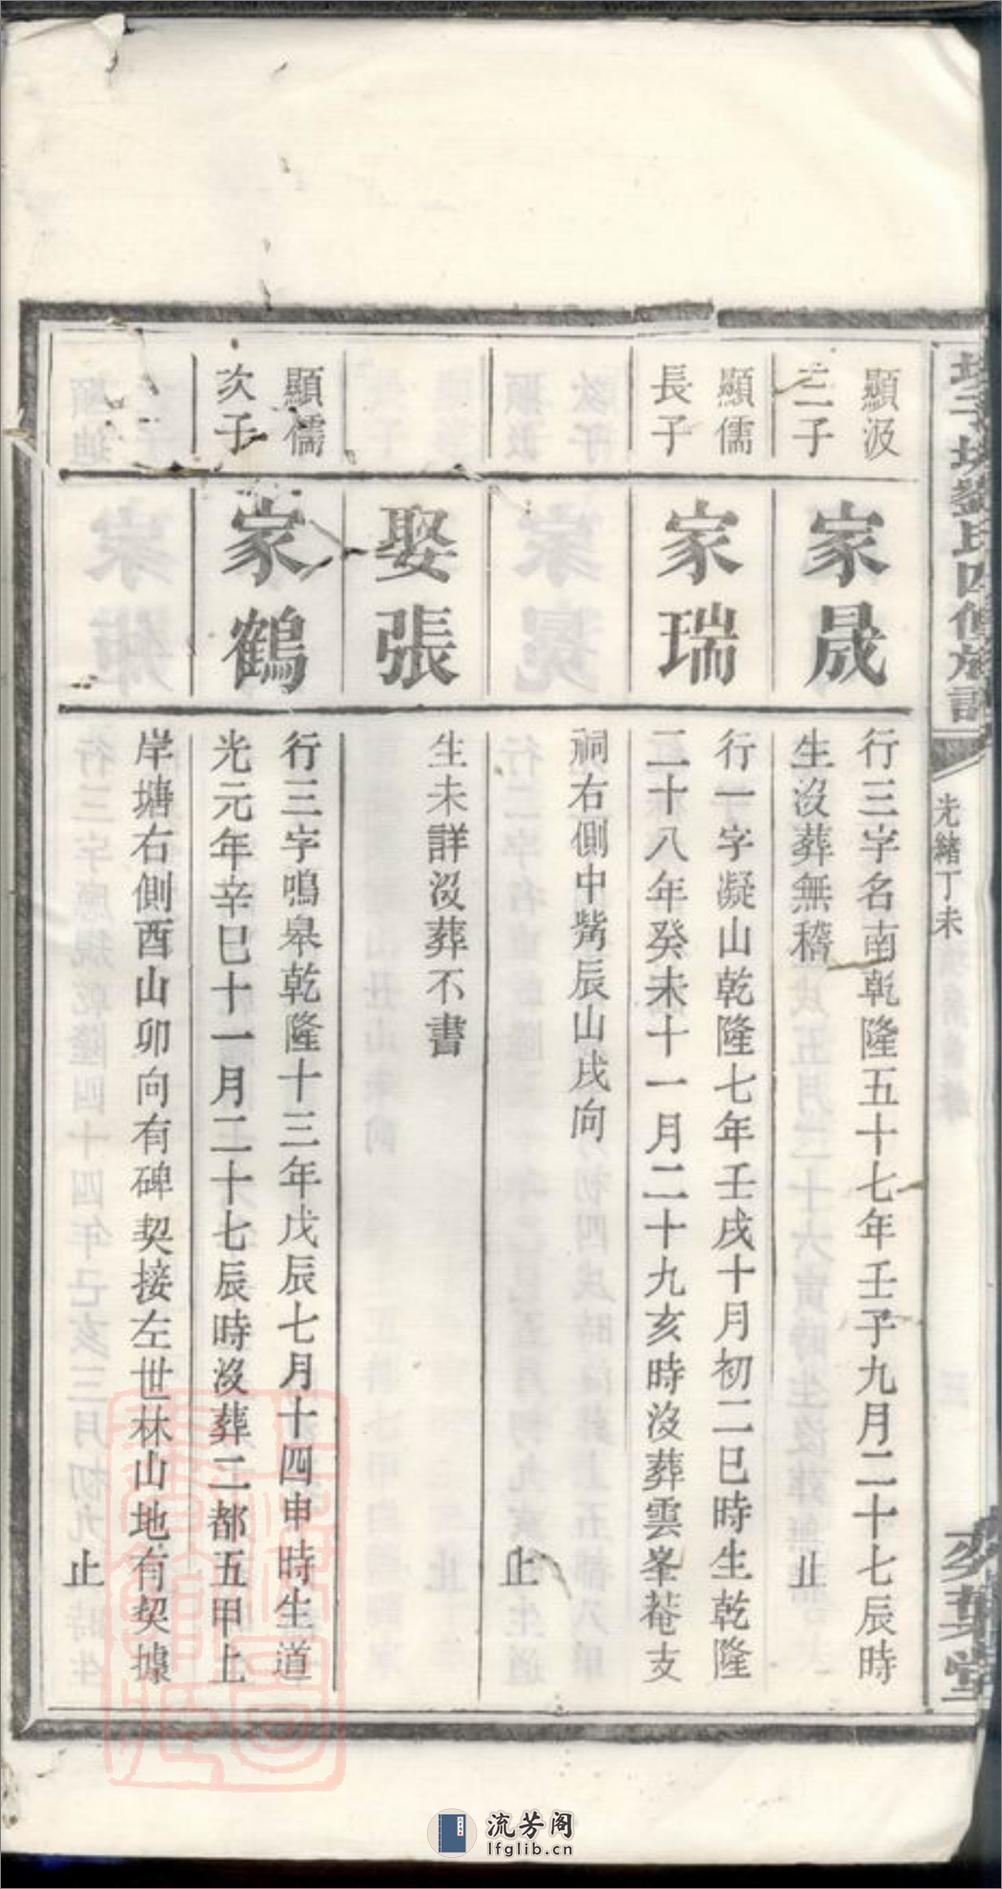 劉氏四修族譜
光緒丁未
顯汲
三子
家晟
行三字名南乾隆五十七年壬子九月二十七辰時
生沒葬無稽
止
顯儒
長子
家瑞
行一字凝山乾隆七年壬戌十月初二巳時生乾隆
二十八年癸未十一月二十九亥時沒葬雲峯菴支
祠右側中觜辰山戌向
止
娶張
生未詳沒葬不書
顯儒
次子
家鶴
行三字鳴皋乾隆十三年戊辰七月十四申時生道
光元年辛巳十一月二十七辰時沒葬二都五甲上
岸塘右側酉山卯向有碑契接左世林山地有契據
止
流芳阁
lfglib.cn